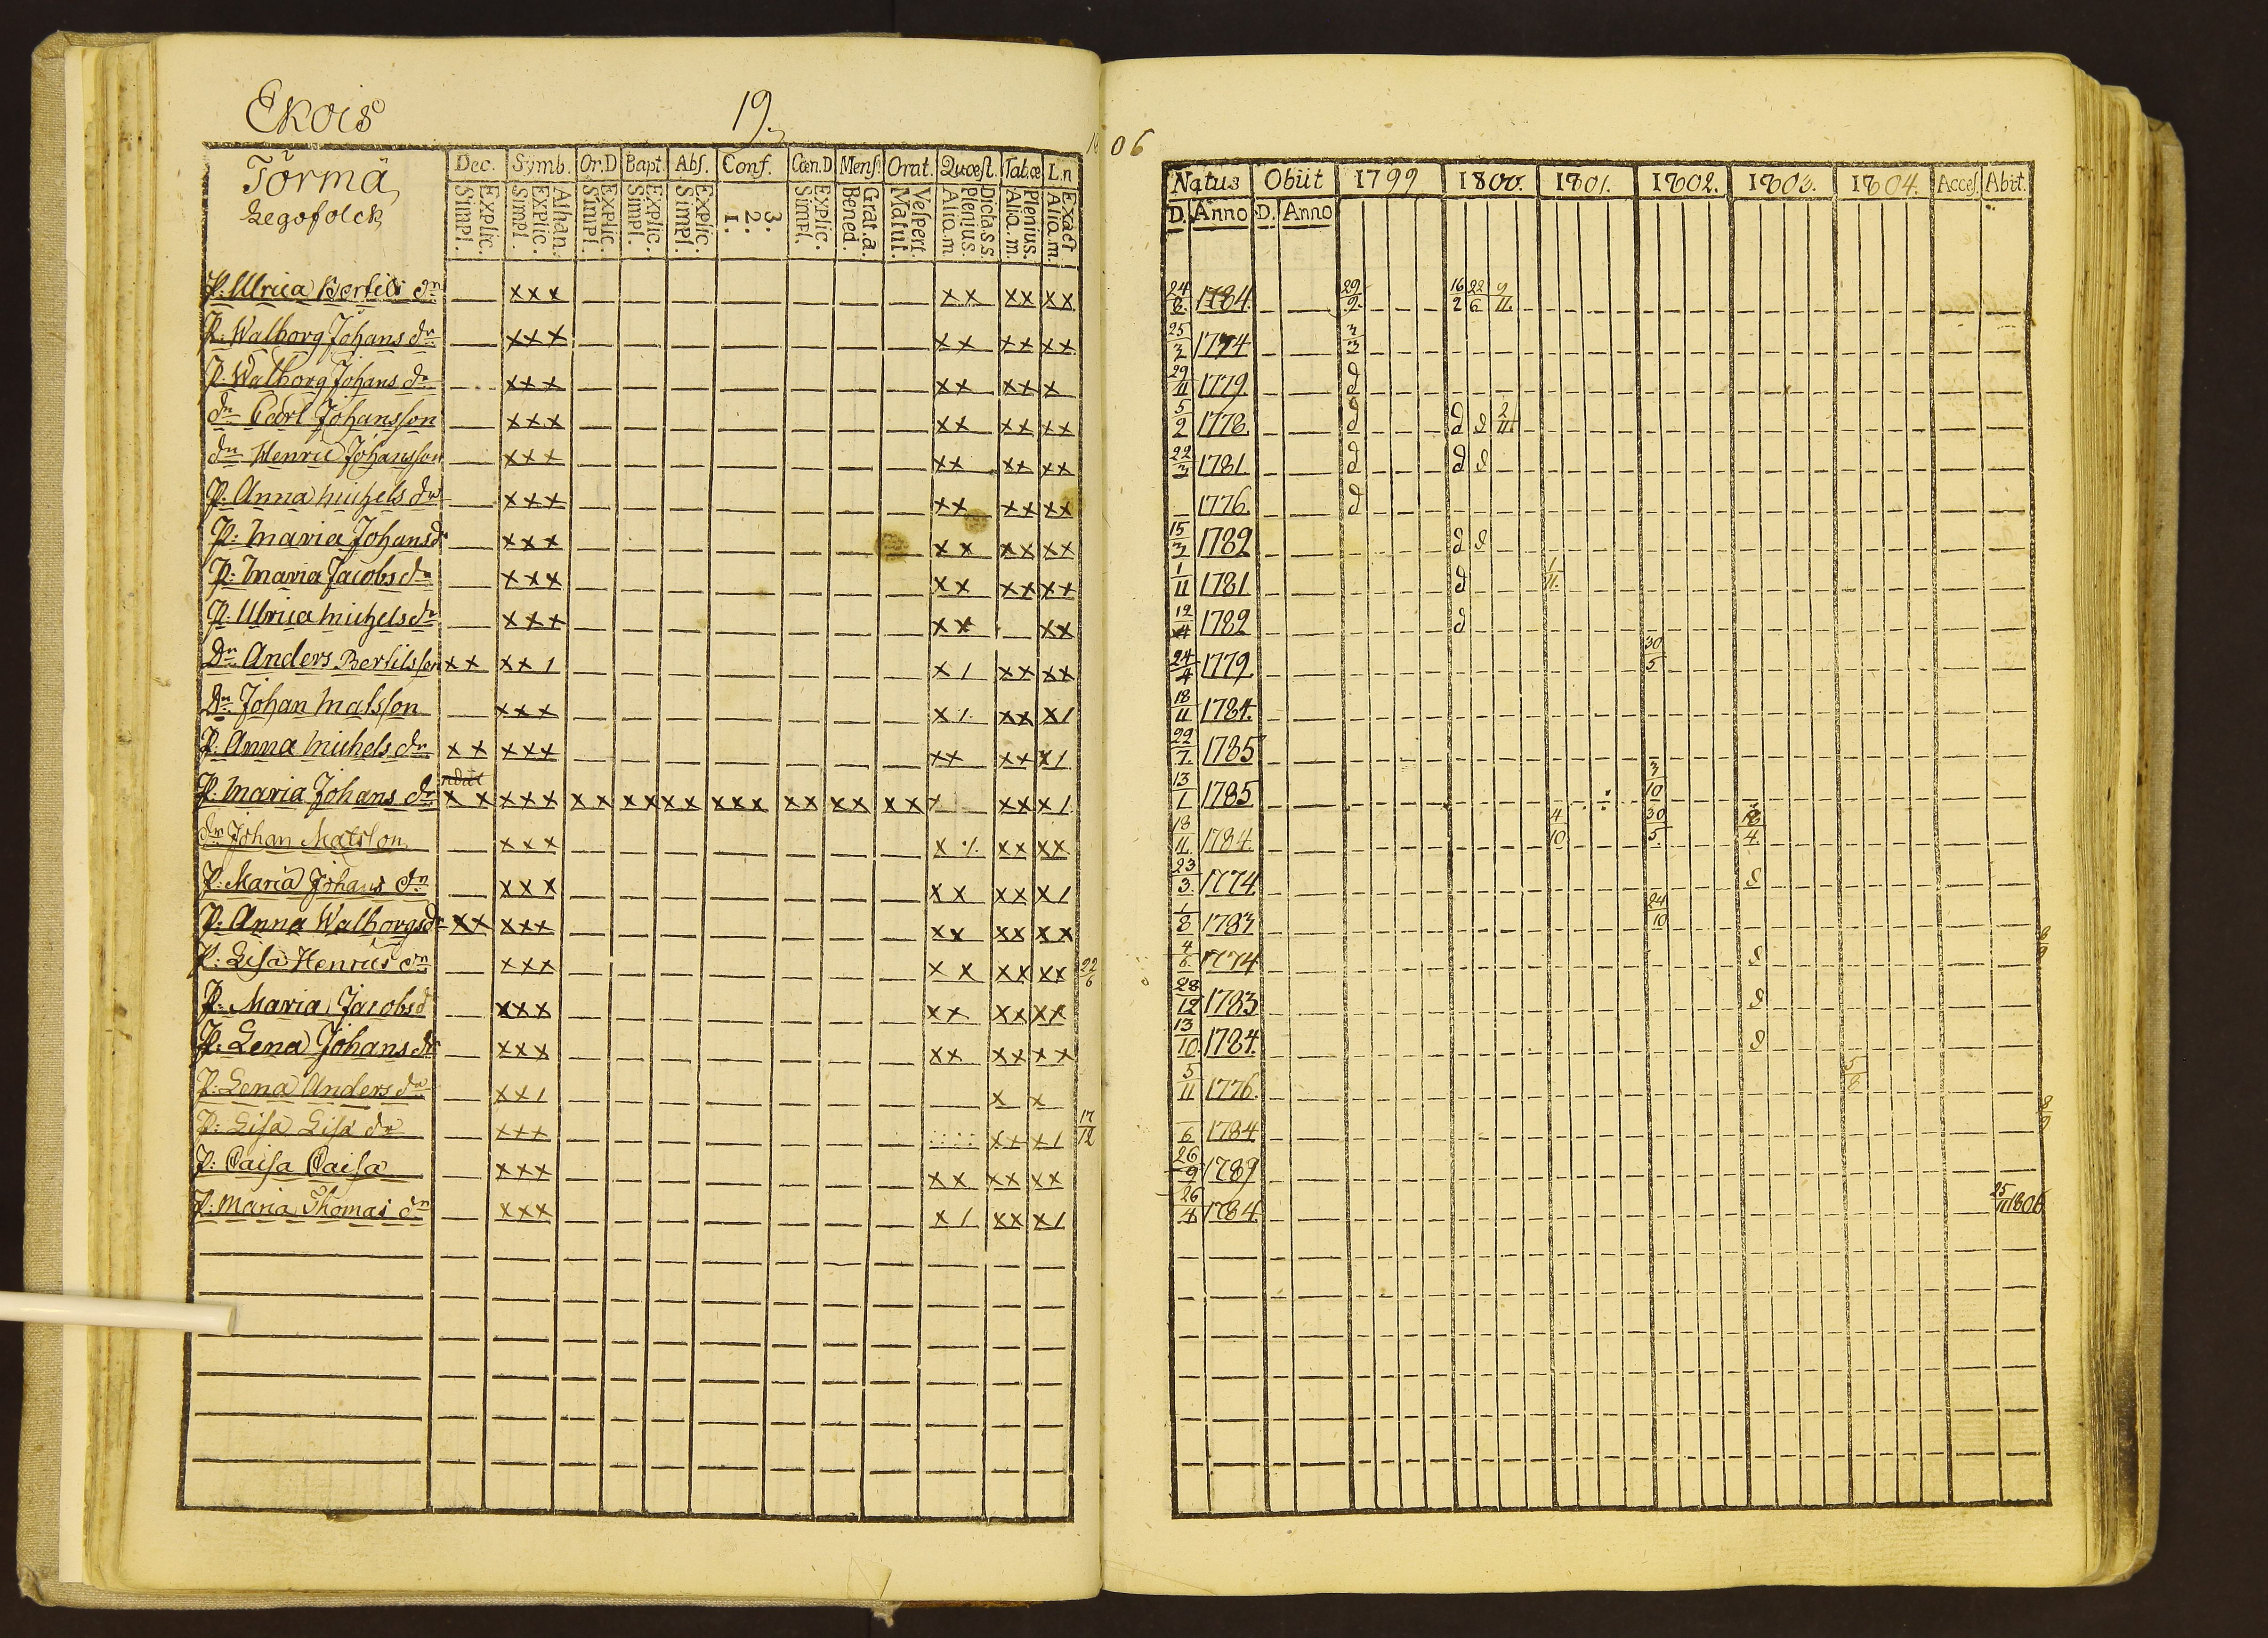 Ekois 19.
Törmä
Legofolck
Dec. Symb. Or.D Bapt. Abs. Conf. Cœn.D Mens. Orat. Quœst. Tab.œ L.n
Explic. Simpl. Athan. Explic. Simpl. Explic. Simpl. Explic. Simpl. Explic. Simpl. 3. 2. 1. Explic. Simpl. Grat.a. Bened. Vespert. Matut. Dicta.s.s. Plenius. Aliq.m Plenius. Aliq.m. Exact Aliq.m.
P. Ulrica Bertils dr xxx xx xx xx
P. Walborg Johans dr xxx xx xx xx
P. Walborg Johans dr xxx xx xx x
dr Carl Johansson xxx xx xx xx
dr Henric Johansson xxx xx xx xx
P. Anna Michels dr xxx xx xx xx
P. Maria Johansd xxx xx xx xx
P. Maria Jacobs dr xxx xx xx xx
P. Ulrica Michels dr xxx xx xx
Dr Anders Bertilsson xx xx1 x1 xx xx
Dr Johan Matsson xxx x1 xx x1
P. Anna Michels dr xx xxx xx xx x1
P. Maria Johans dr xx xxx xx xx xx xxx xx xx xx x xx x1
dr Johan Matsson xxx x xx xx
P. Maria Johans dr xxx xx xx x1
P. Anna Walborgsdr xx xxx xx xx xx
P. Lisa Henrics dr xxx xx xx xx 22/6
P. Maria Jacobsd xxx xx xx xx
P. Lena Johans dr xxx xx xx xx
P. Lena Anders dr xx1 x x
P. Lisa Lisa dr xxx xx x1 17/12
P. Caisa Caisa xxx xx xx xx
P. Maria Thomas dr xxx x1 xx x1
1806
Natus Obiit 1799 1800. 1801. 1802. 1803. 1804. Acces. Abit.
D. Anno D. Anno
24/8. 1784. 29/9. 16/2 22/6 9/11.
25/3 1774 3/3
29/11 1779. d
5/2 1778. d d d 2/11
22/3 1781. d d d
1776. d
15/3 1782 d d
1/11 1781 d 1/11.
12/4 1782 d
24/4 1779. 30/5
18/11 1784.
22/7. 1785
13/1 1785 3/10
18/11. 1784. 4/10 30/5. 4.
23/3. 1774. d
1/8 1783. 24/10
4/6 1774 d
28/12 1783 d
13/10. 1784. d
5/11 1776. 5/8
6 1784
26/9 1789
26/4 1784. 25/11 1806